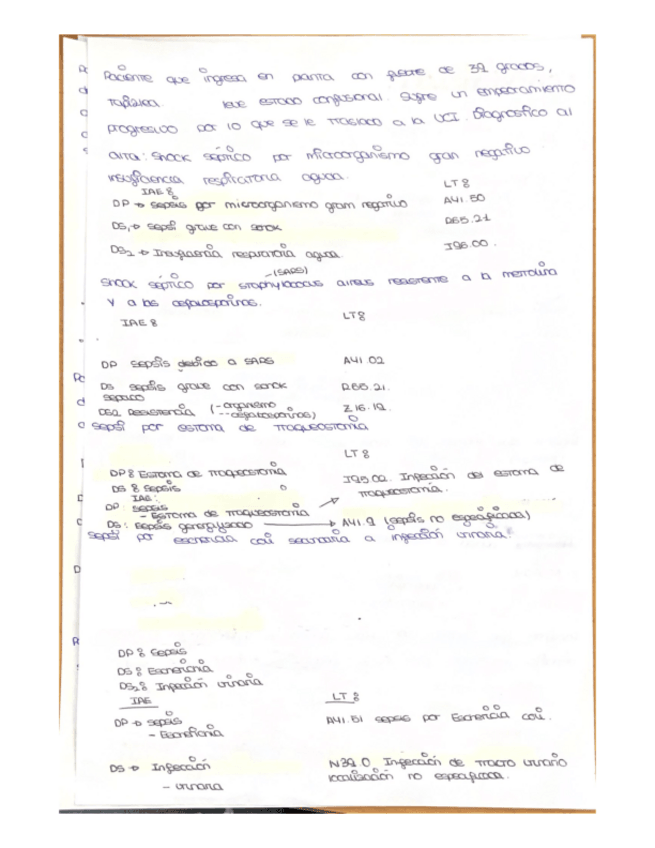 Paciente que ingresa en planta con fiebre de 39 grados,
leve estado confusional. Sufre un empeoramiento
progresivo por lo que se le traslada a la UCI. Diagnostico al
alta: Shock séptico por microorganismo gran negativo
insuficiencia respiratoria aguda.
IAE: LT:
DP → sepsis por microorganismo gram negativo A41.50
DS1 → sepsi grave con shock R65.21
DS2 → Insuficiencia respiratoria aguda J96.00.
(SARS)
Shock séptico por staphylococcus aireus resistente a la meticilina
y a las cefalosporinas.
IAE: LT:
DP sepsis debido a SARS A41.02
DS sepsis grave con shock R65.21.
séptico
DS2 Resistencia (-organismo Z16.19.
-cefalosporinas)
sepsi por estoma de traqueostomia
LT:
DP: Estoma de traqueostomia J95.02. Infección del estoma de
DS: sepsis traqueostomia.
IAE:
DP: sepsis
- Estoma de traqueostomia
DS: sepsis generalizado → A41.9 (sepsis no especificada)
sepsi por escherichia coli secundaria a infección urinaria.
DP: Sepsis
DS: Escherichia
DS2: Infección urinaria
IAE LT:
DP → sepsis A41.51 sepsis por Escherichia coli.
- Escherichia
DS → Infección N39.0. Infección de tracto urinario
- urinaria localización no especificada.